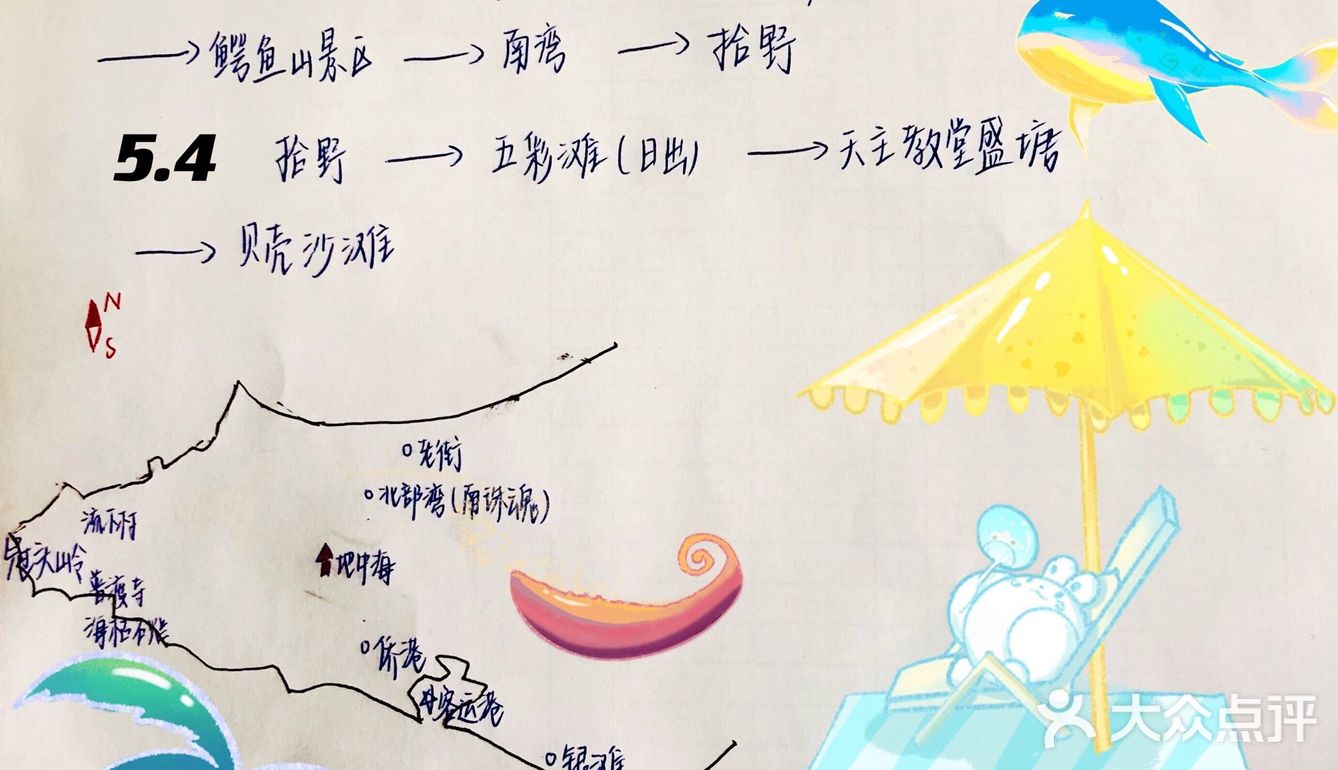 →鳄鱼山景区 → 南湾 → 拾野
5.4 拾野 → 五彩滩(日出) → 天主教堂盛塘
→ 贝壳沙滩
N
S
老街
北部湾(南珠魂)
流下村
冠头岭
地中海
普度寺
侨港
客运港
银滩
大众点评